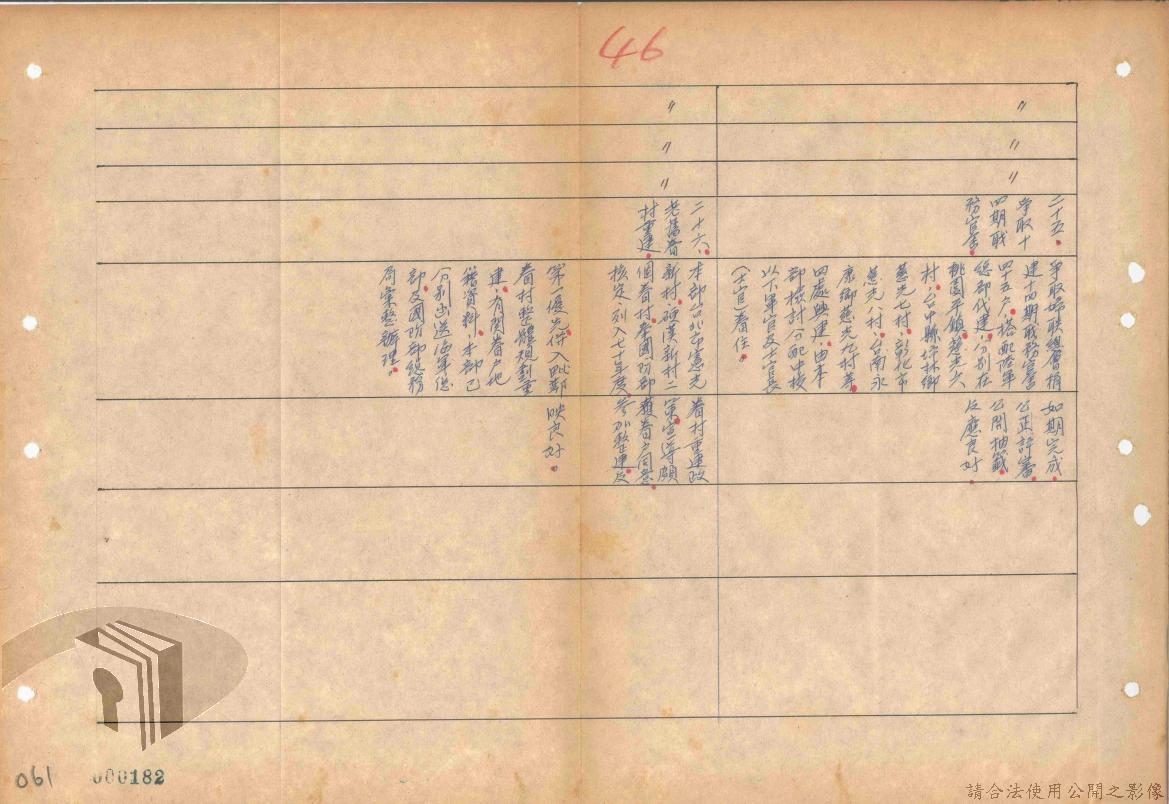 46
〃
〃
〃
二十五、
爭取十
四期職
務官舍
爭取婦聯總會捐
建十四期職務官舍
四十五戶,搭配陸軍
總部代建,分別在
桃園平鎮慈光六
村,台中縣坪林鄉
慈光七村,彰化市
慈光八村,台南永
康鄉慈光九村等
四處興建,由本
部檢討分配中校
以下軍官及士官長
(士官)眷住。
如期完成,
公正評審
公開抽籤
反應良好
〃
〃
〃
二十六、
老舊眷
村重建
本部台北市憲光
新村,硬漢新村二
個眷村奉國防部
核定列入七十年度
第一優先併入此鄰
眷村整體規劃重
建,有關眷戶地
籍資料,本部已
分別出送海軍總
部及國防部總務
局彙整辦理。
眷村重建政
策宣導頗
獲眷戶同意
參加整建反
映良好。
061
000182
請合法使用公開之影像